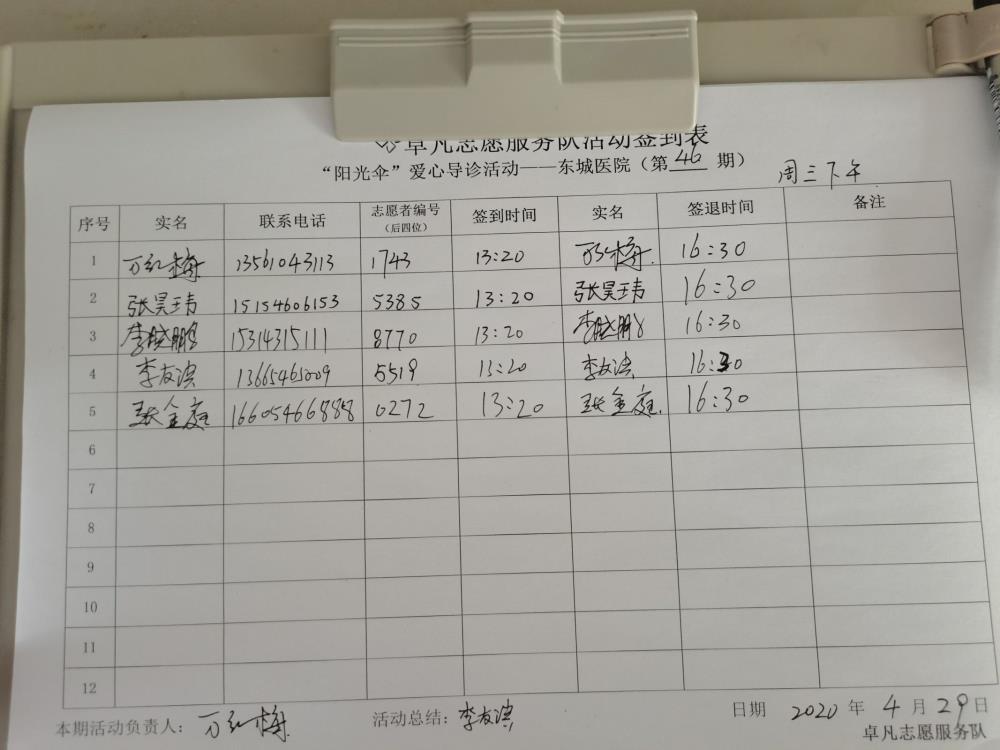 卓凡志愿服务队活动签到表
“阳光伞”爱心导诊活动——东城医院（第 46 期）
周三下午
序号 实名 联系电话 志愿者编号（后四位） 签到时间 实名 签退时间 备注
1 万红梅 13561043113 1743 13:20 万红梅 16:30
2 张昊玮 15154606153 5385 13:20 张昊玮 16:30
3 李晓鹏 15314315111 8770 13:20 李晓鹏 16:30
4 李友滨 13665461009 5519 13:20 李友滨 16:30
5 张金庭 16605466888 0272 13:20 张金庭 16:30
6
7
8
9
10
11
12
本期活动负责人： 万红梅 活动总结： 李友滨 日期 2020 年 4 月 29 日
卓凡志愿服务队